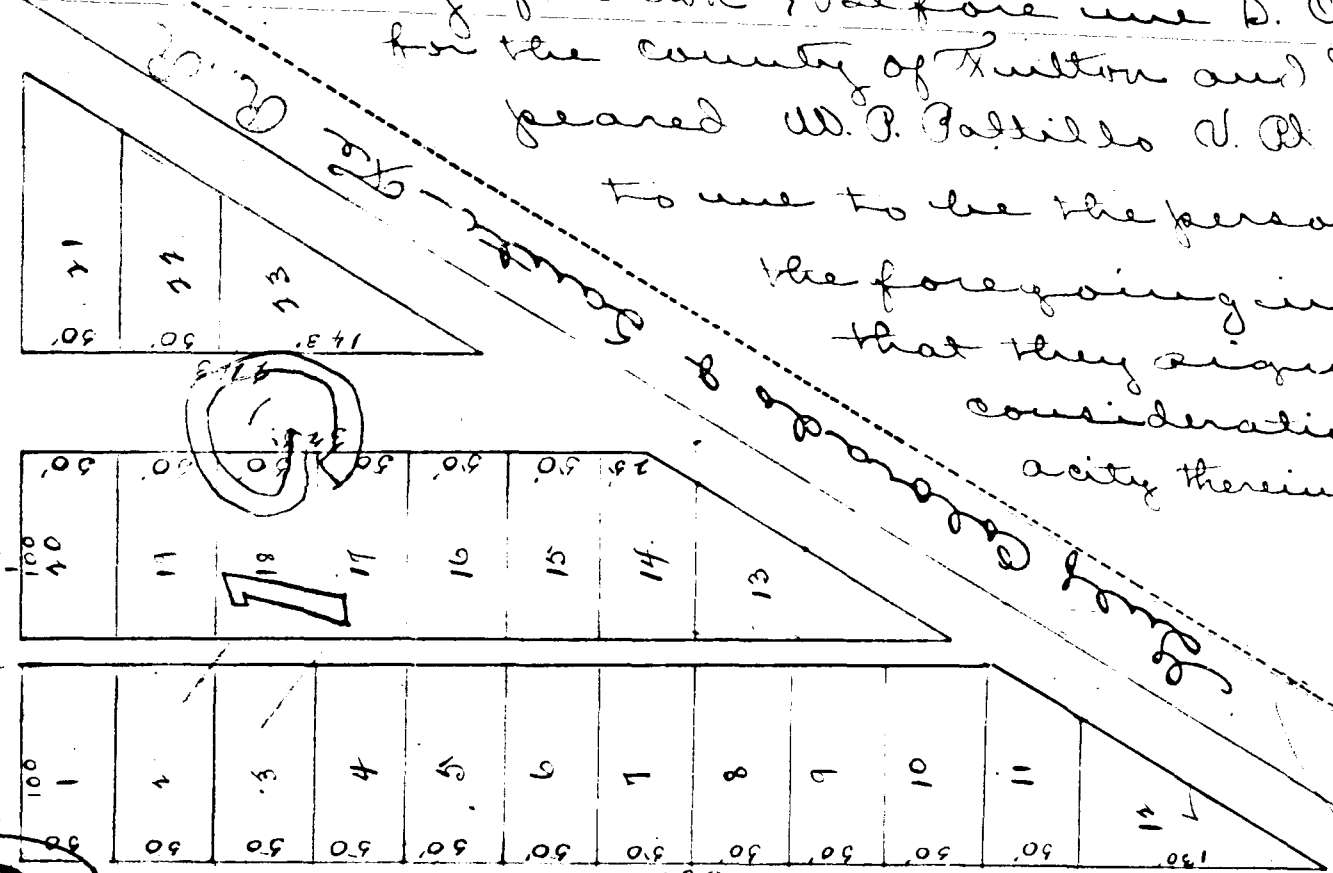 for the county of Fulton and
peared W. P. Pattillo V. P
to me to be the perso
the foregoing in
that they sign
consideratio
acity therein
Gulf Colorado & Santa Fe R. R.
21 22 23
50' 50' 143'
50' 50 50 50 50' 50' 25'
100
20 19 18 17 16 15 14 13
1
100
1 2 3 4 5 6 7 8 9 10 11 12
50 50 50' 50' 50' 50' 50' 50 50' 50' 50' 130'